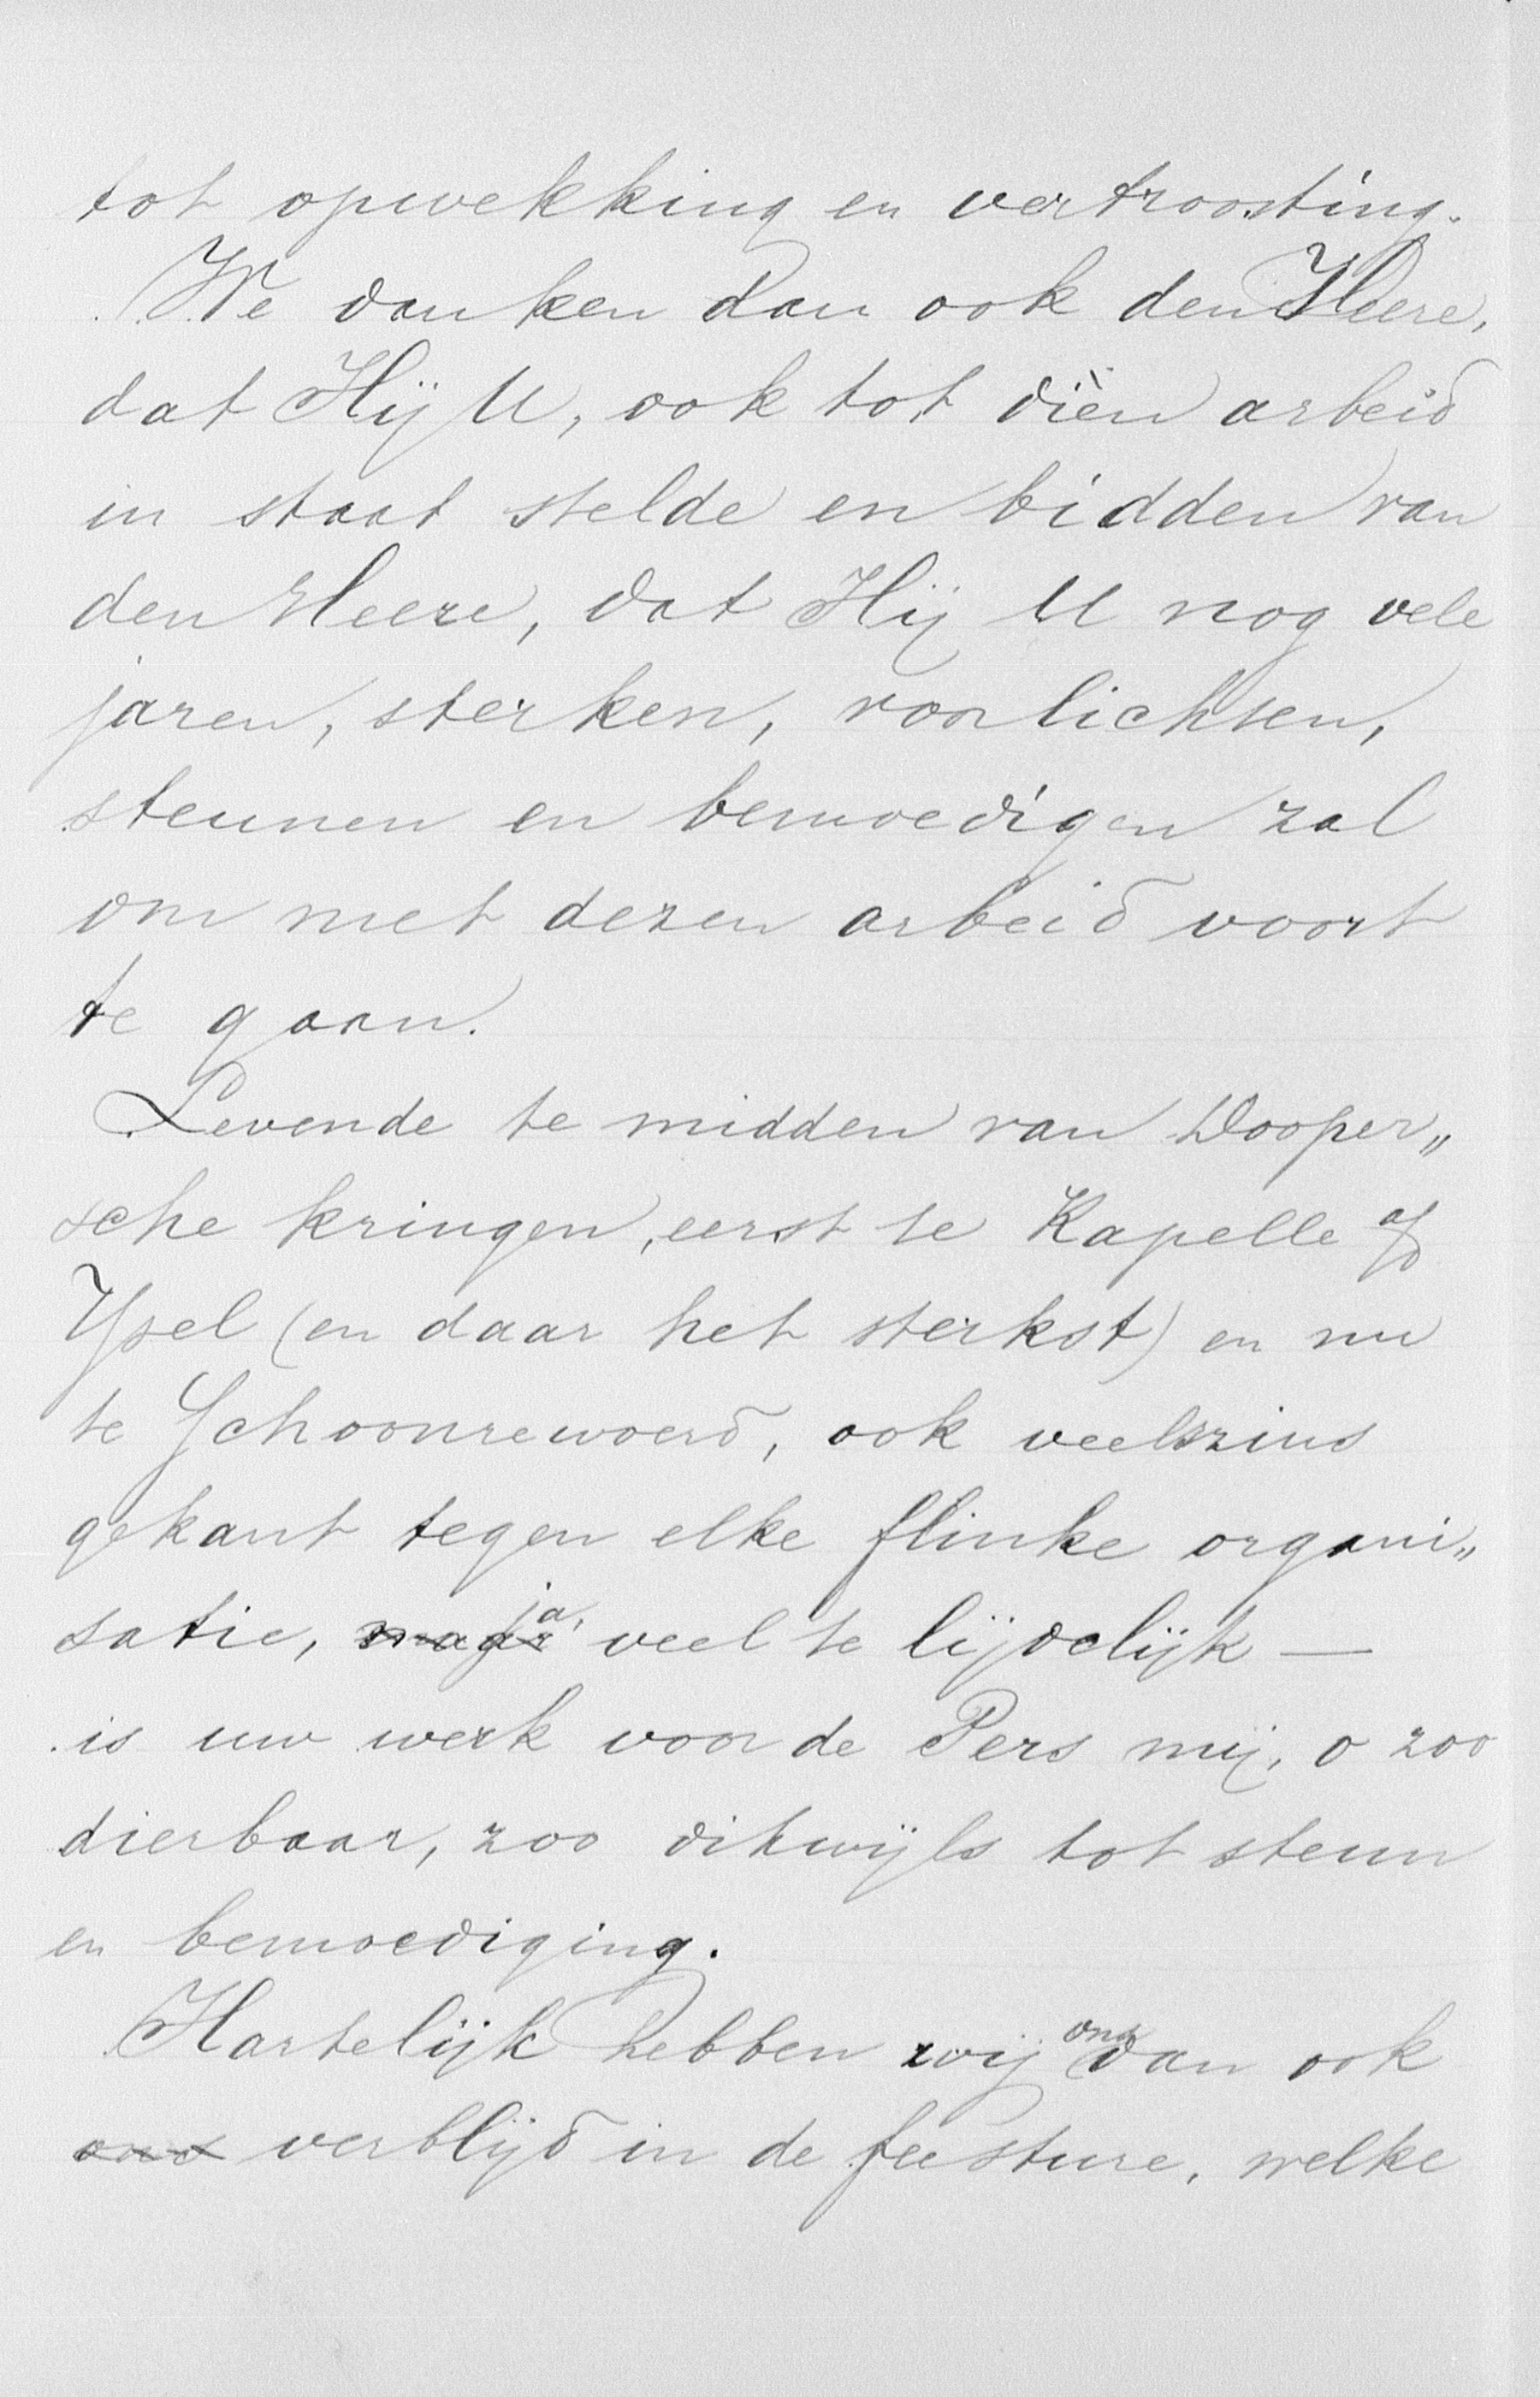 tot opwekking en vertroosting.
We danken dan ook den Heere,
dat Hij U, ook tot dièn arbeid
in staat stelde en bidden van
den Heere, dat Hij U nog vele
jaren, sterken, voorlichten,
steunen en bemoedigen zal
om met dezen arbeid voort
te gaan.
Levende te midden van Dooper„
sche kringen, eerst te Kapelle a/d
Ysel (en daar het sterkst) en nu
te Schoonrewoerd, ook veelszins
gekant tegen elke flinke organi„
satie, ja, veel te lijdelijk —
is uw werk voor de Pers mij, o zoo
dierbaar, zoo dikwijls tot steun
en bemoediging.
Hartelijk hebben wij ons dan ook
ons verblijd in de feesture, welke